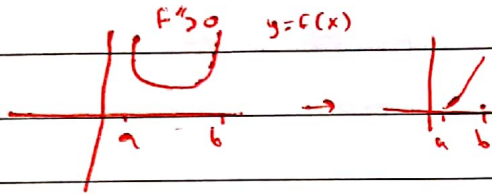 F''>0 y=F(x)
→
a b a b